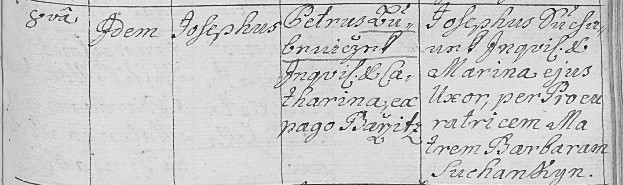 8vâ
Idem
Josephus
Petrus Du-
bravicznk
Inqvil. & Ca-
tharina, ex
pago Baritz
Josephus Sucha-
unk Inqvil. &
Marina ejus
Uxor, per Procu
ratricem Ma
trem Barbaram
Suchankyn.